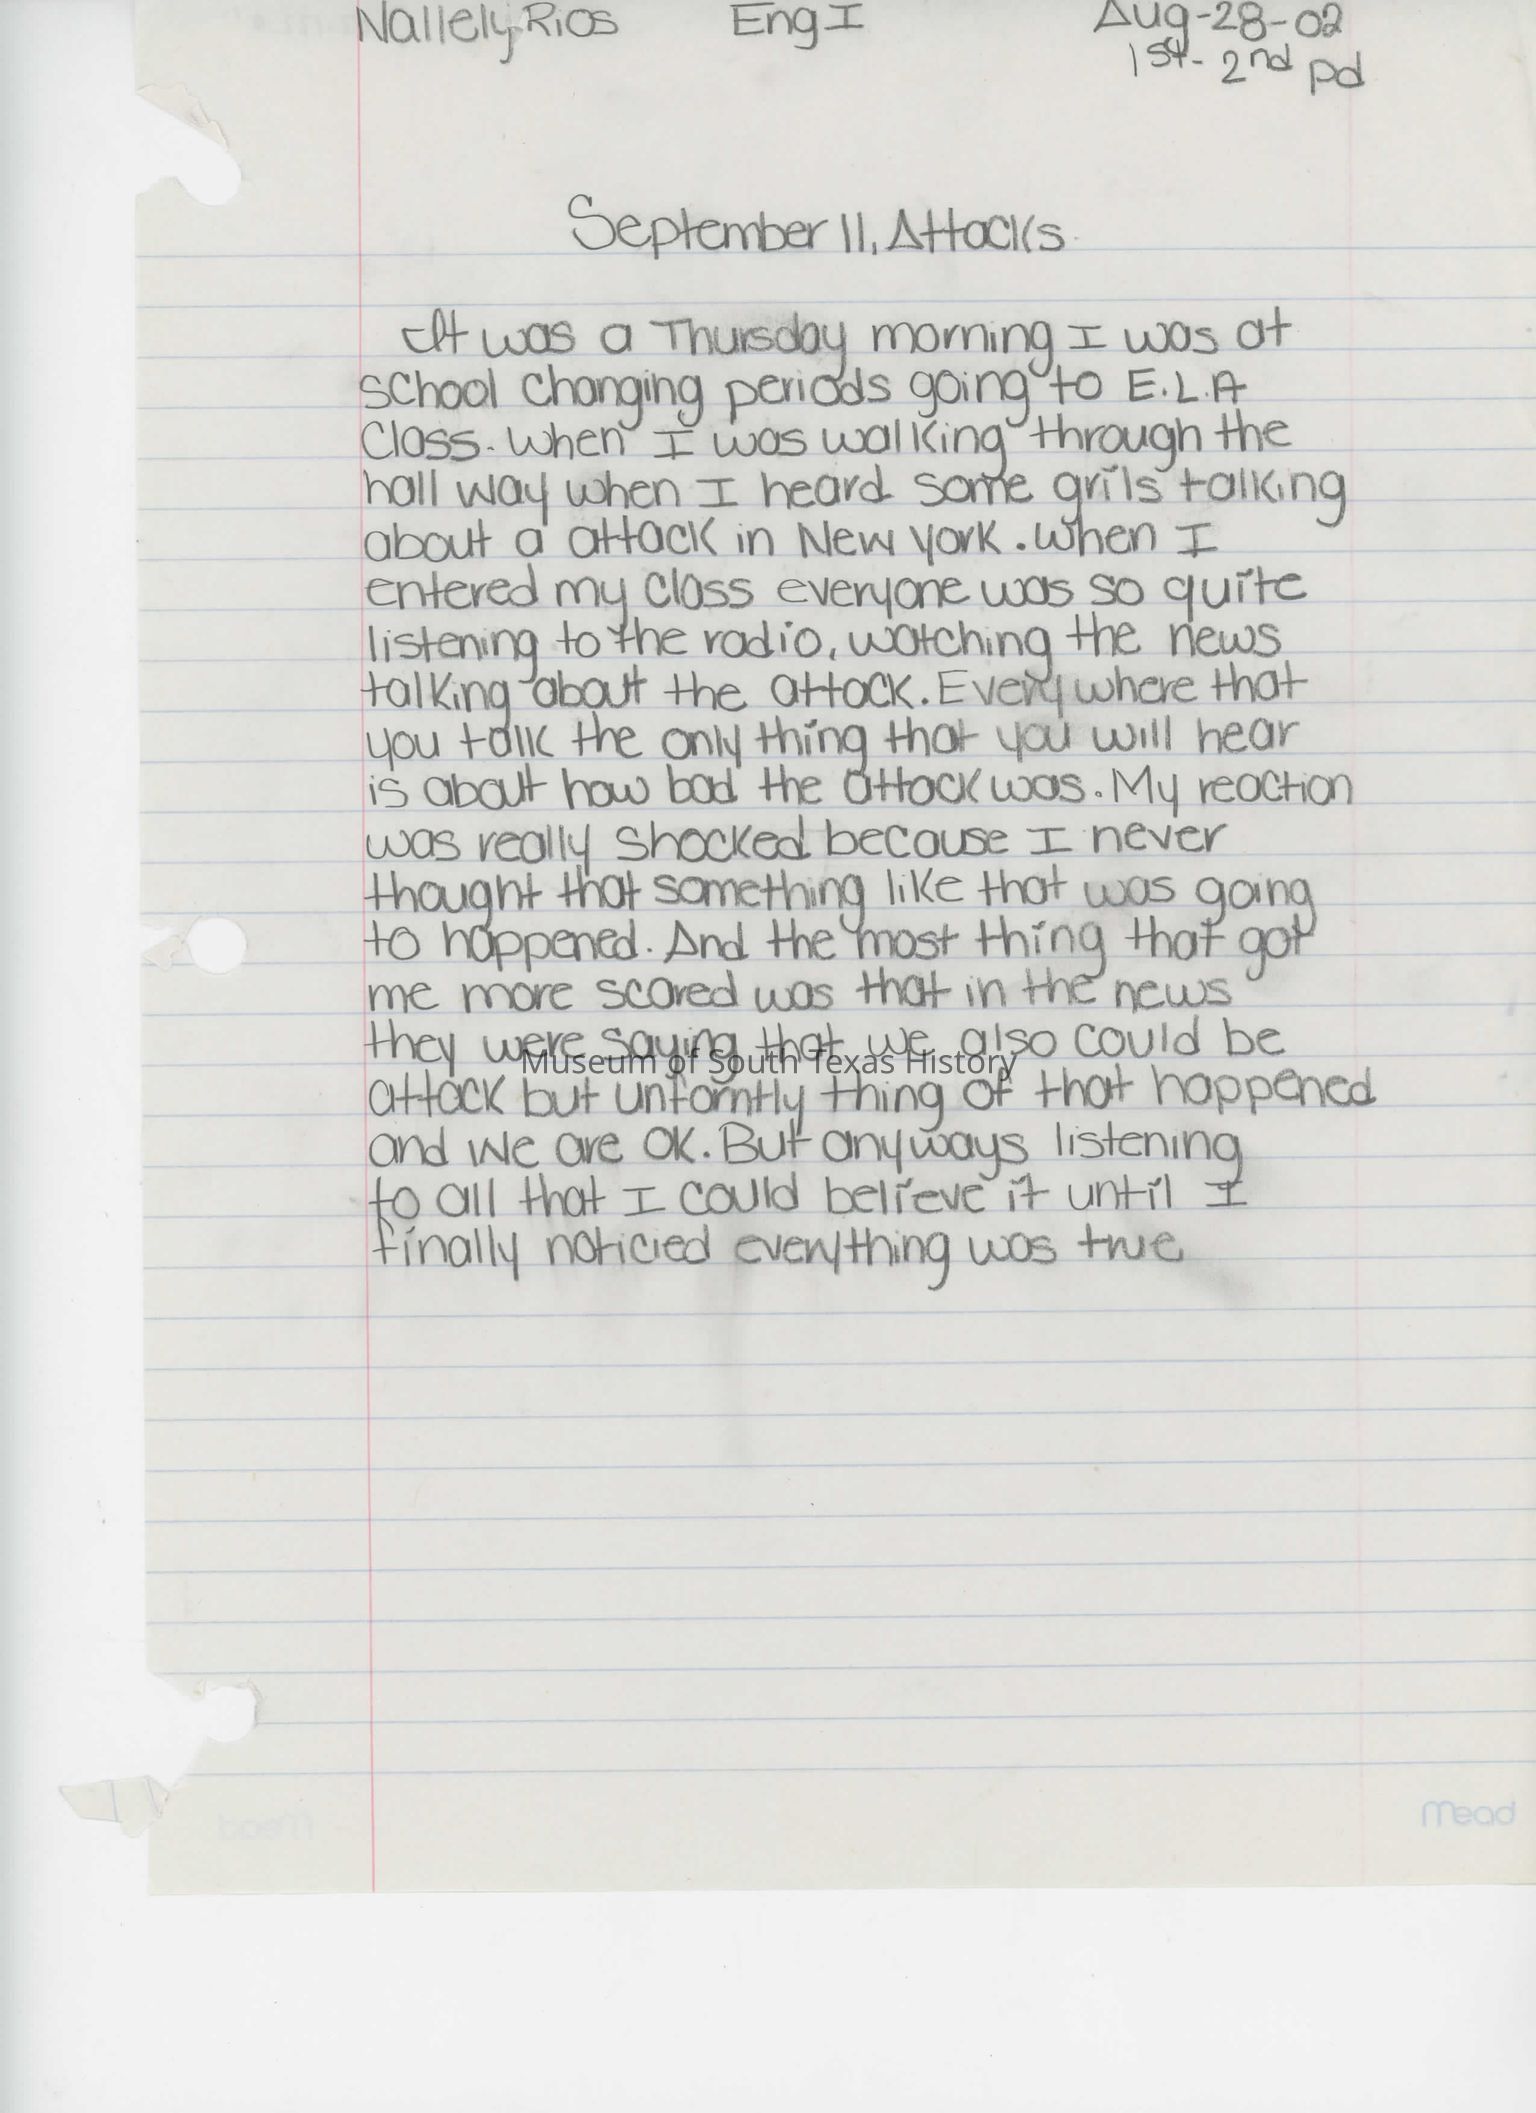 Nallely Rios Eng I Aug-28-02
1st- 2nd pd
September 11, Attacks
It was a Thursday morning I was at
school changing periods going to E.L.A
Class. When I was walking through the
hall way when I heard some grils talking
about a attack in New York. When I
entered my class everyone was so quite
listening to the radio, watching the news
talking about the attack. Every where that
you talk the only thing that you will hear
is about how bad the attack was. My reaction
was really shocked because I never
thought that something like that was going
to happened. And the most thing that got
me more scared was that in the news
they were saying that we also could be
Museum of South Texas History
attack but unforntly thing of that happened
and we are OK. But anyways listening
to all that I could believe it until I
finally noticied everything was true
Mead